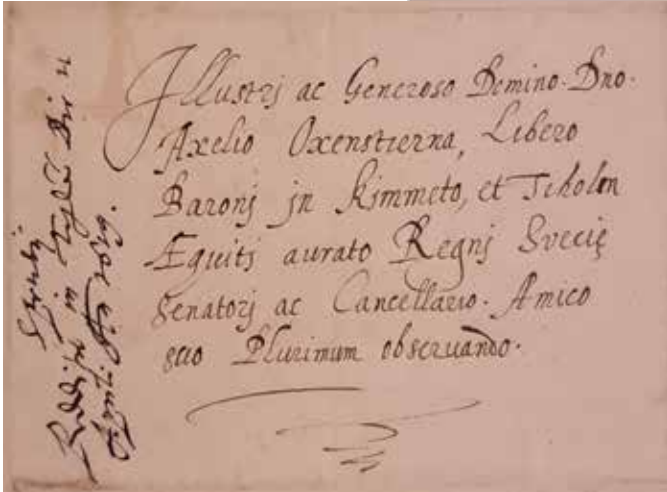 Illustrj ac Generoso Domino. Dno.
Axelio Oxenstierna, Libero
Baronj jn Kimmeto, et Tiholm
Æquitj aurato Regnj Svecię
Senatorj ac Cancellario. Amico
suo Plurimum obseruando.
in